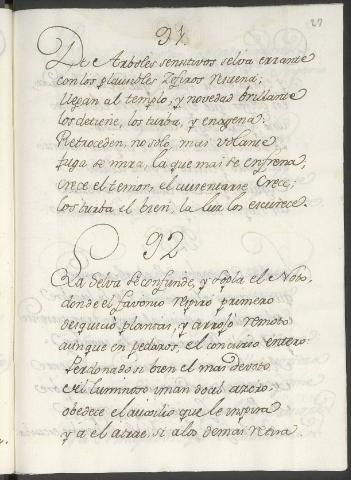 27
91
De Arboles sensitivos selva errante
con los plausibles Zefiros resuena;
llegan al templo, y novedad brillante
los detiene, los turba, y enagena:
Retroceden, no solo, mas volante
fuga se mira, la que mas se enfrena,
crece el temor, el ausentarse crece;
los turba el bien, la luz los escurece.
92
La selva se confunde, y sopla el Noto,
donde el favonio respiró primero
desquició plantas, y arrojó remoto
aunque en pedazos, el concurso entero:
Perdonado si bien el mas devoto
del luminoso iman do al azero,
obedece el auxilio que le inspira
y a el atrae, si a los demas retira.